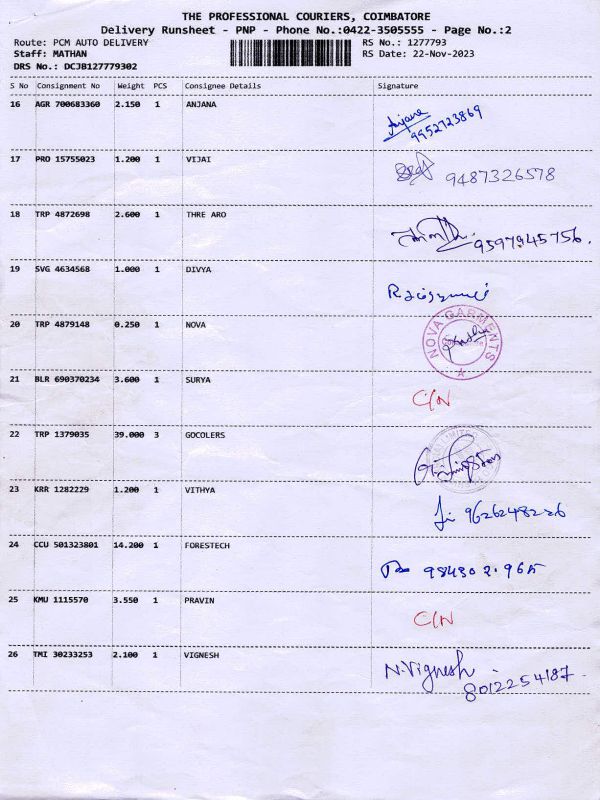 THE PROFESSIONAL COURIERS, COIMBATORE
Delivery Runsheet - PNP - Phone No.:0422-3505555 - Page No.:2
Route: PCM AUTO DELIVERY RS No.: 1277793
Staff: MATHAN RS Date: 22-Nov-2023
DRS No.: DCJB127779302
S No Consignment No Weight PCS Consignee Details Signature
16 AGR 700683360 2.150 1 ANJANA
Anjana
9952723869
17 PRO 15755023 1.200 1 VIJAI
9487326578
18 TRP 4872698 2.600 1 THRE ARO
9597945756.
19 SVG 4634568 1.000 1 DIVYA
20 TRP 4879148 0.250 1 NOVA
NOVA GARMENTS
21 BLR 690370234 3.600 1 SURYA
C/N
22 TRP 1379035 39.000 3 GOCOLERS
23 KRR 1282229 1.200 1 VITHYA
9626248226
24 CCU 501323801 14.200 1 FORESTECH
25 KMU 1115570 3.550 1 PRAVIN
C/N
26 TMI 30233253 2.100 1 VIGNESH
N.Vignesh
8012254187